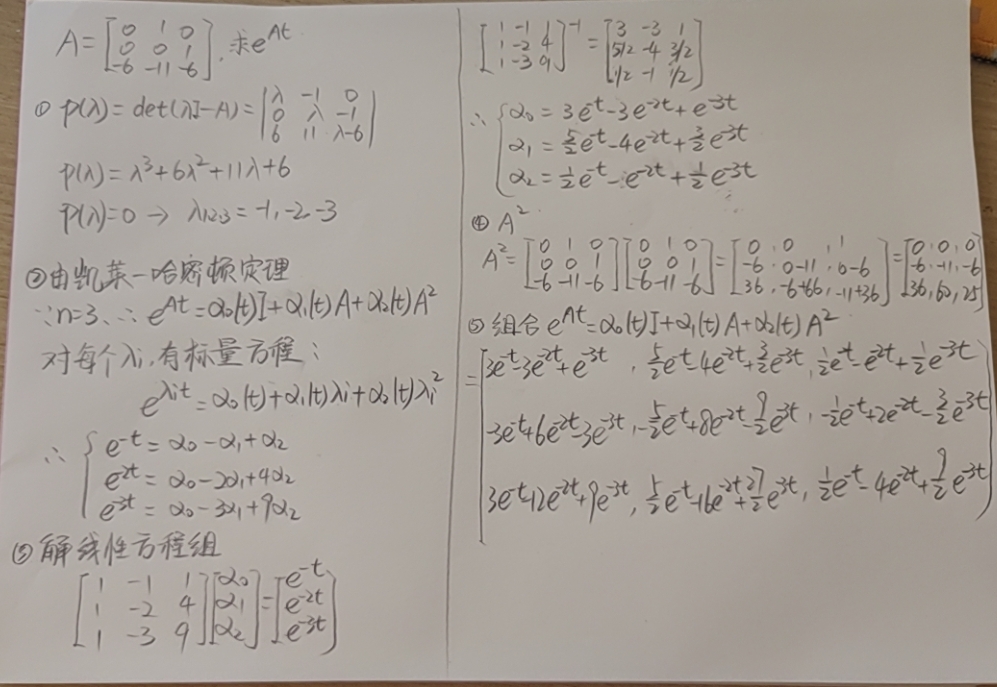 A = [0 1 0; 0 0 1; -6 -11 -6], 求e^{At}
① p(λ) = det(λI-A) = |λ -1 0; 0 λ -1; 6 11 λ-6|
p(λ) = λ³+6λ²+11λ+6
p(λ)=0 → λ₁,₂,₃ = -1, -2, -3
②由凯莱-哈密顿定理
∵n=3, ∴ e^{At} = α₀(t)I+α₁(t)A+α₂(t)A²
对每个λi, 有标量方程:
e^{λit} = α₀(t)+α₁(t)λi+α₂(t)λi²
∴ { e^{-t} = α₀-α₁+α₂
e^{-2t} = α₀-2α₁+4α₂
e^{-3t} = α₀-3α₁+9α₂
③解线性方程组
[1 -1 1; 1 -2 4; 1 -3 9][α₀; α₁; α₂] = [e^{-t}; e^{-2t}; e^{-3t}]
[1 -1 1; 1 -2 4; 1 -3 9]^{-1} = [3 -3 1; 5/2 -4 3/2; 1/2 -1 1/2]
∴ { α₀ = 3e^{-t}-3e^{-2t}+e^{-3t}
α₁ = 5/2e^{-t}-4e^{-2t}+3/2e^{-3t}
α₂ = 1/2e^{-t}-e^{-2t}+1/2e^{-3t}
④ A²
A² = [0 1 0; 0 0 1; -6 -11 -6][0 1 0; 0 0 1; -6 -11 -6] = [0, 0, 1; -6, 0-11, 0-6; 36, -6+66, -11+36] = [0, 0, 0; -6, -11, -6; 36, 60, 25]
⑤ 组合 e^{At} = α₀(t)I+α₁(t)A+α₂(t)A²
= [3e^{-t}-3e^{-2t}+e^{-3t}, 5/2e^{-t}-4e^{-2t}+3/2e^{-3t}, 1/2e^{-t}-e^{-2t}+1/2e^{-3t}
-3e^{-t}+6e^{-2t}-3e^{-3t}, -5/2e^{-t}+8e^{-2t}-9/2e^{-3t}, -1/2e^{-t}+2e^{-2t}-3/2e^{-3t}
3e^{-t}-12e^{-2t}+9e^{-3t}, 5/2e^{-t}-16e^{-2t}+27/2e^{-3t}, 1/2e^{-t}-4e^{-2t}+9/2e^{-3t}]